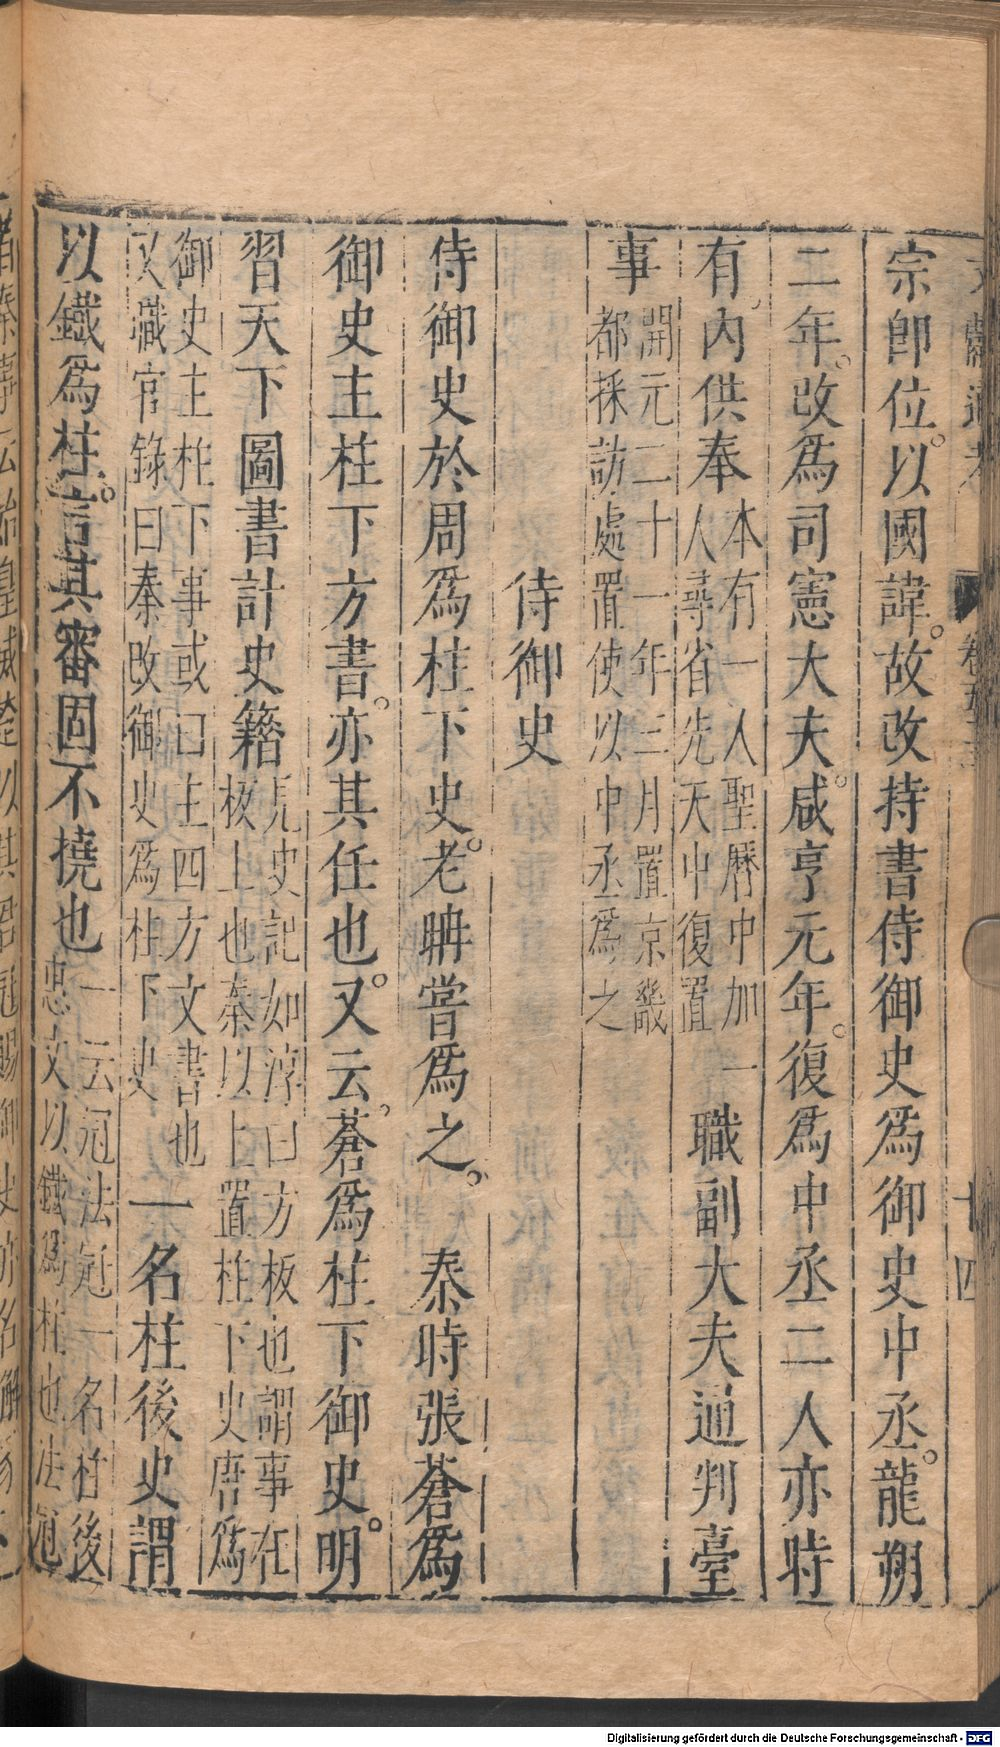 宗卽位。以國諱。故改持書侍御史爲御史中丞。龍朔
二年。改爲司憲大夫。咸亨元年。復爲中丞二人亦時
有內供奉本有一人聖曆中加一
人尋省先天中復置職副大夫通判臺
事開元二十一年三月置京畿
都採訪處置使以中丞爲之
侍御史
侍御史於周爲柱下史。老聃嘗爲之。秦時張蒼爲
御史主柱下方書。亦其任也。又云蒼爲柱下御史。明
習天下圖書計史籍見史記如淳曰方板也謂事在
板上也秦以上置柱下史唐爲
御史主柱下事或曰主四方文書也
又職官錄曰秦改御史爲柱下史一名柱後史謂
以鐵爲柱。言其審固不撓也一云冠法冠一名柱後
惠文以鐵爲柱也法冠
十四
Digitalisierung gefördert durch die Deutsche Forschungsgemeinschaft - DFG